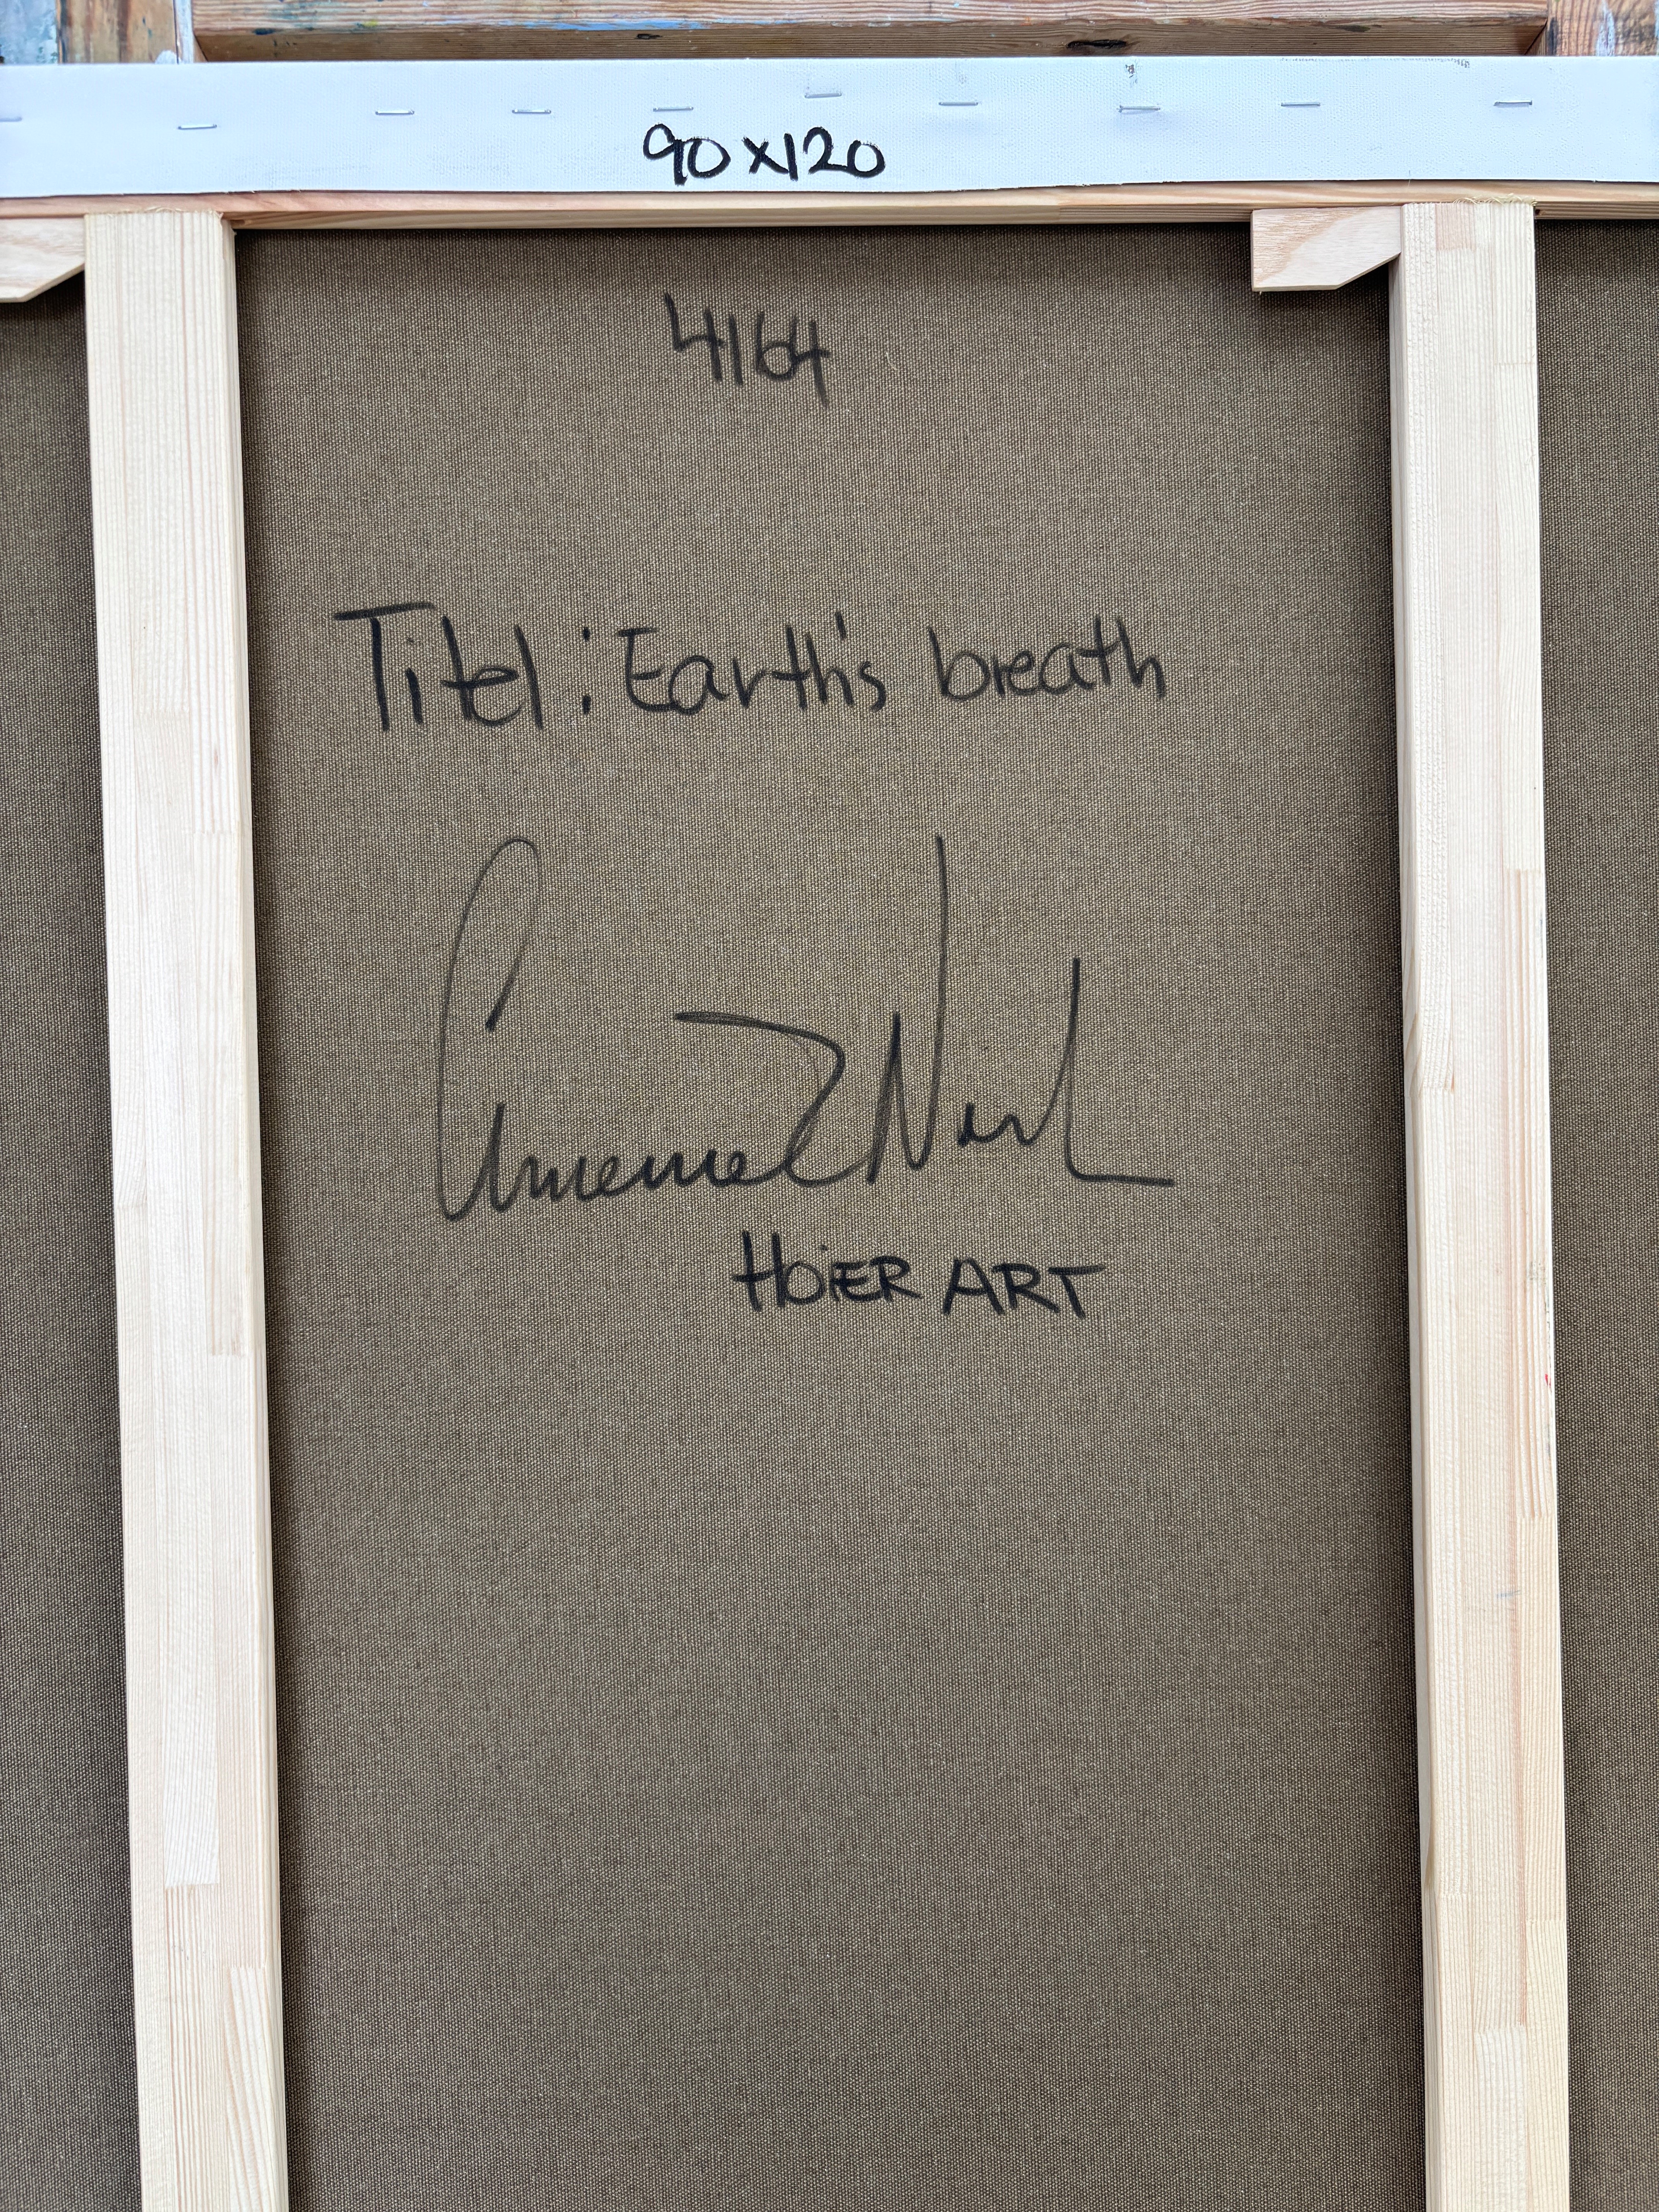 90x120
4164
Titel: Earth's breath
HOiER ART